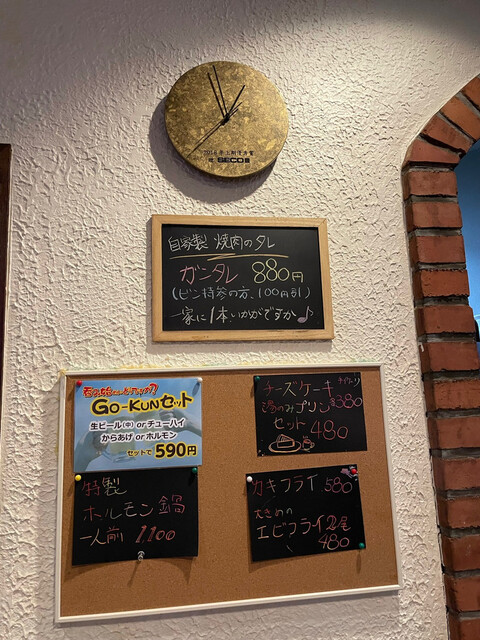 自家製 焼肉のタレ
ガンタレ 880円
(ビン持参の方、100円引)
一家に1本いかがですか♪
GO-KUNセット
生ビール(中) orチューハイ
からあげ orホルモン
セットで 590円
チーズケーキ
湯のみプリン 380
セット 480
特製
ホルモン鍋
一人前 1100
カキフライ 580
大きめの
エビフライ2尾
480